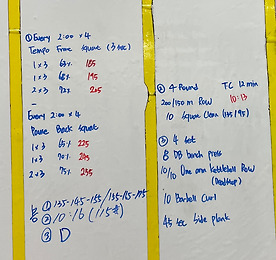 ① Every 2:00 x 4
Tempo Front squat (3 sec)
1 x 3 63% 185
1 x 3 68% 195
2 x 3 72% 205
Every 2:00 x 4
Pause Back squat
1 x 3 65% 225
1 x 3 70% 205
2 x 3 75% 235
① 135-145-155
② 10:16 (115#)
③ D
② 4 Round TC 12 min
200/150 m Row 10:13
10 Squat Clean (135/95)
③ 4 set
8 DB bench press
10/10 One arm Kettlebell Row
(Deadstop)
10 Barbell Curl
45 sec Side plank